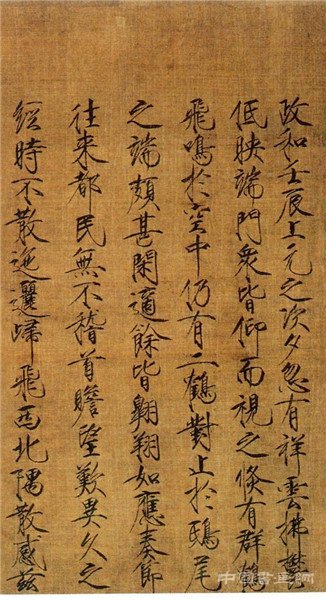 政和壬辰上元之次夕忽有祥雲拂鬱
低映端門衆皆仰而視之倐有群鶴
飛鳴於空中仍有二鶴對止於鴟尾
之端頗甚閑適餘皆翺翔如應奏節
往来都民無不稽首瞻望歎異久之
經時不散迤邐歸飛西北隅散感茲
中国書画网